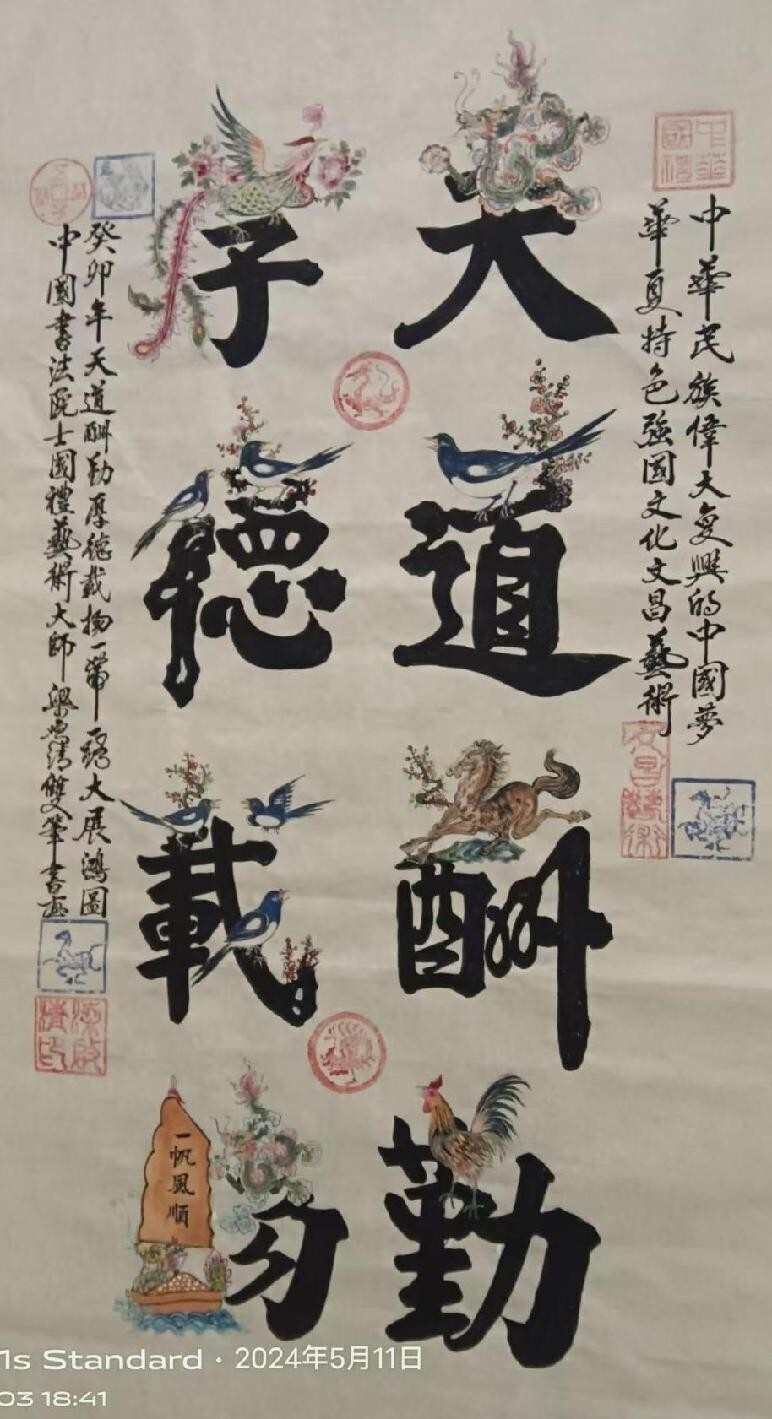 中華國禮
中華民族偉大复興的中國夢
華夏特色強國文化文昌藝術
文昌藝術
天道酬勤
厚德載物
一帆風順
癸卯年天道酬勤厚德載物一帶一路大展鴻圖
中國書法院士國禮藝術大師梁啟清雙筆書画
梁啟清印
1s Standard · 2024年5月11日
03 18:41